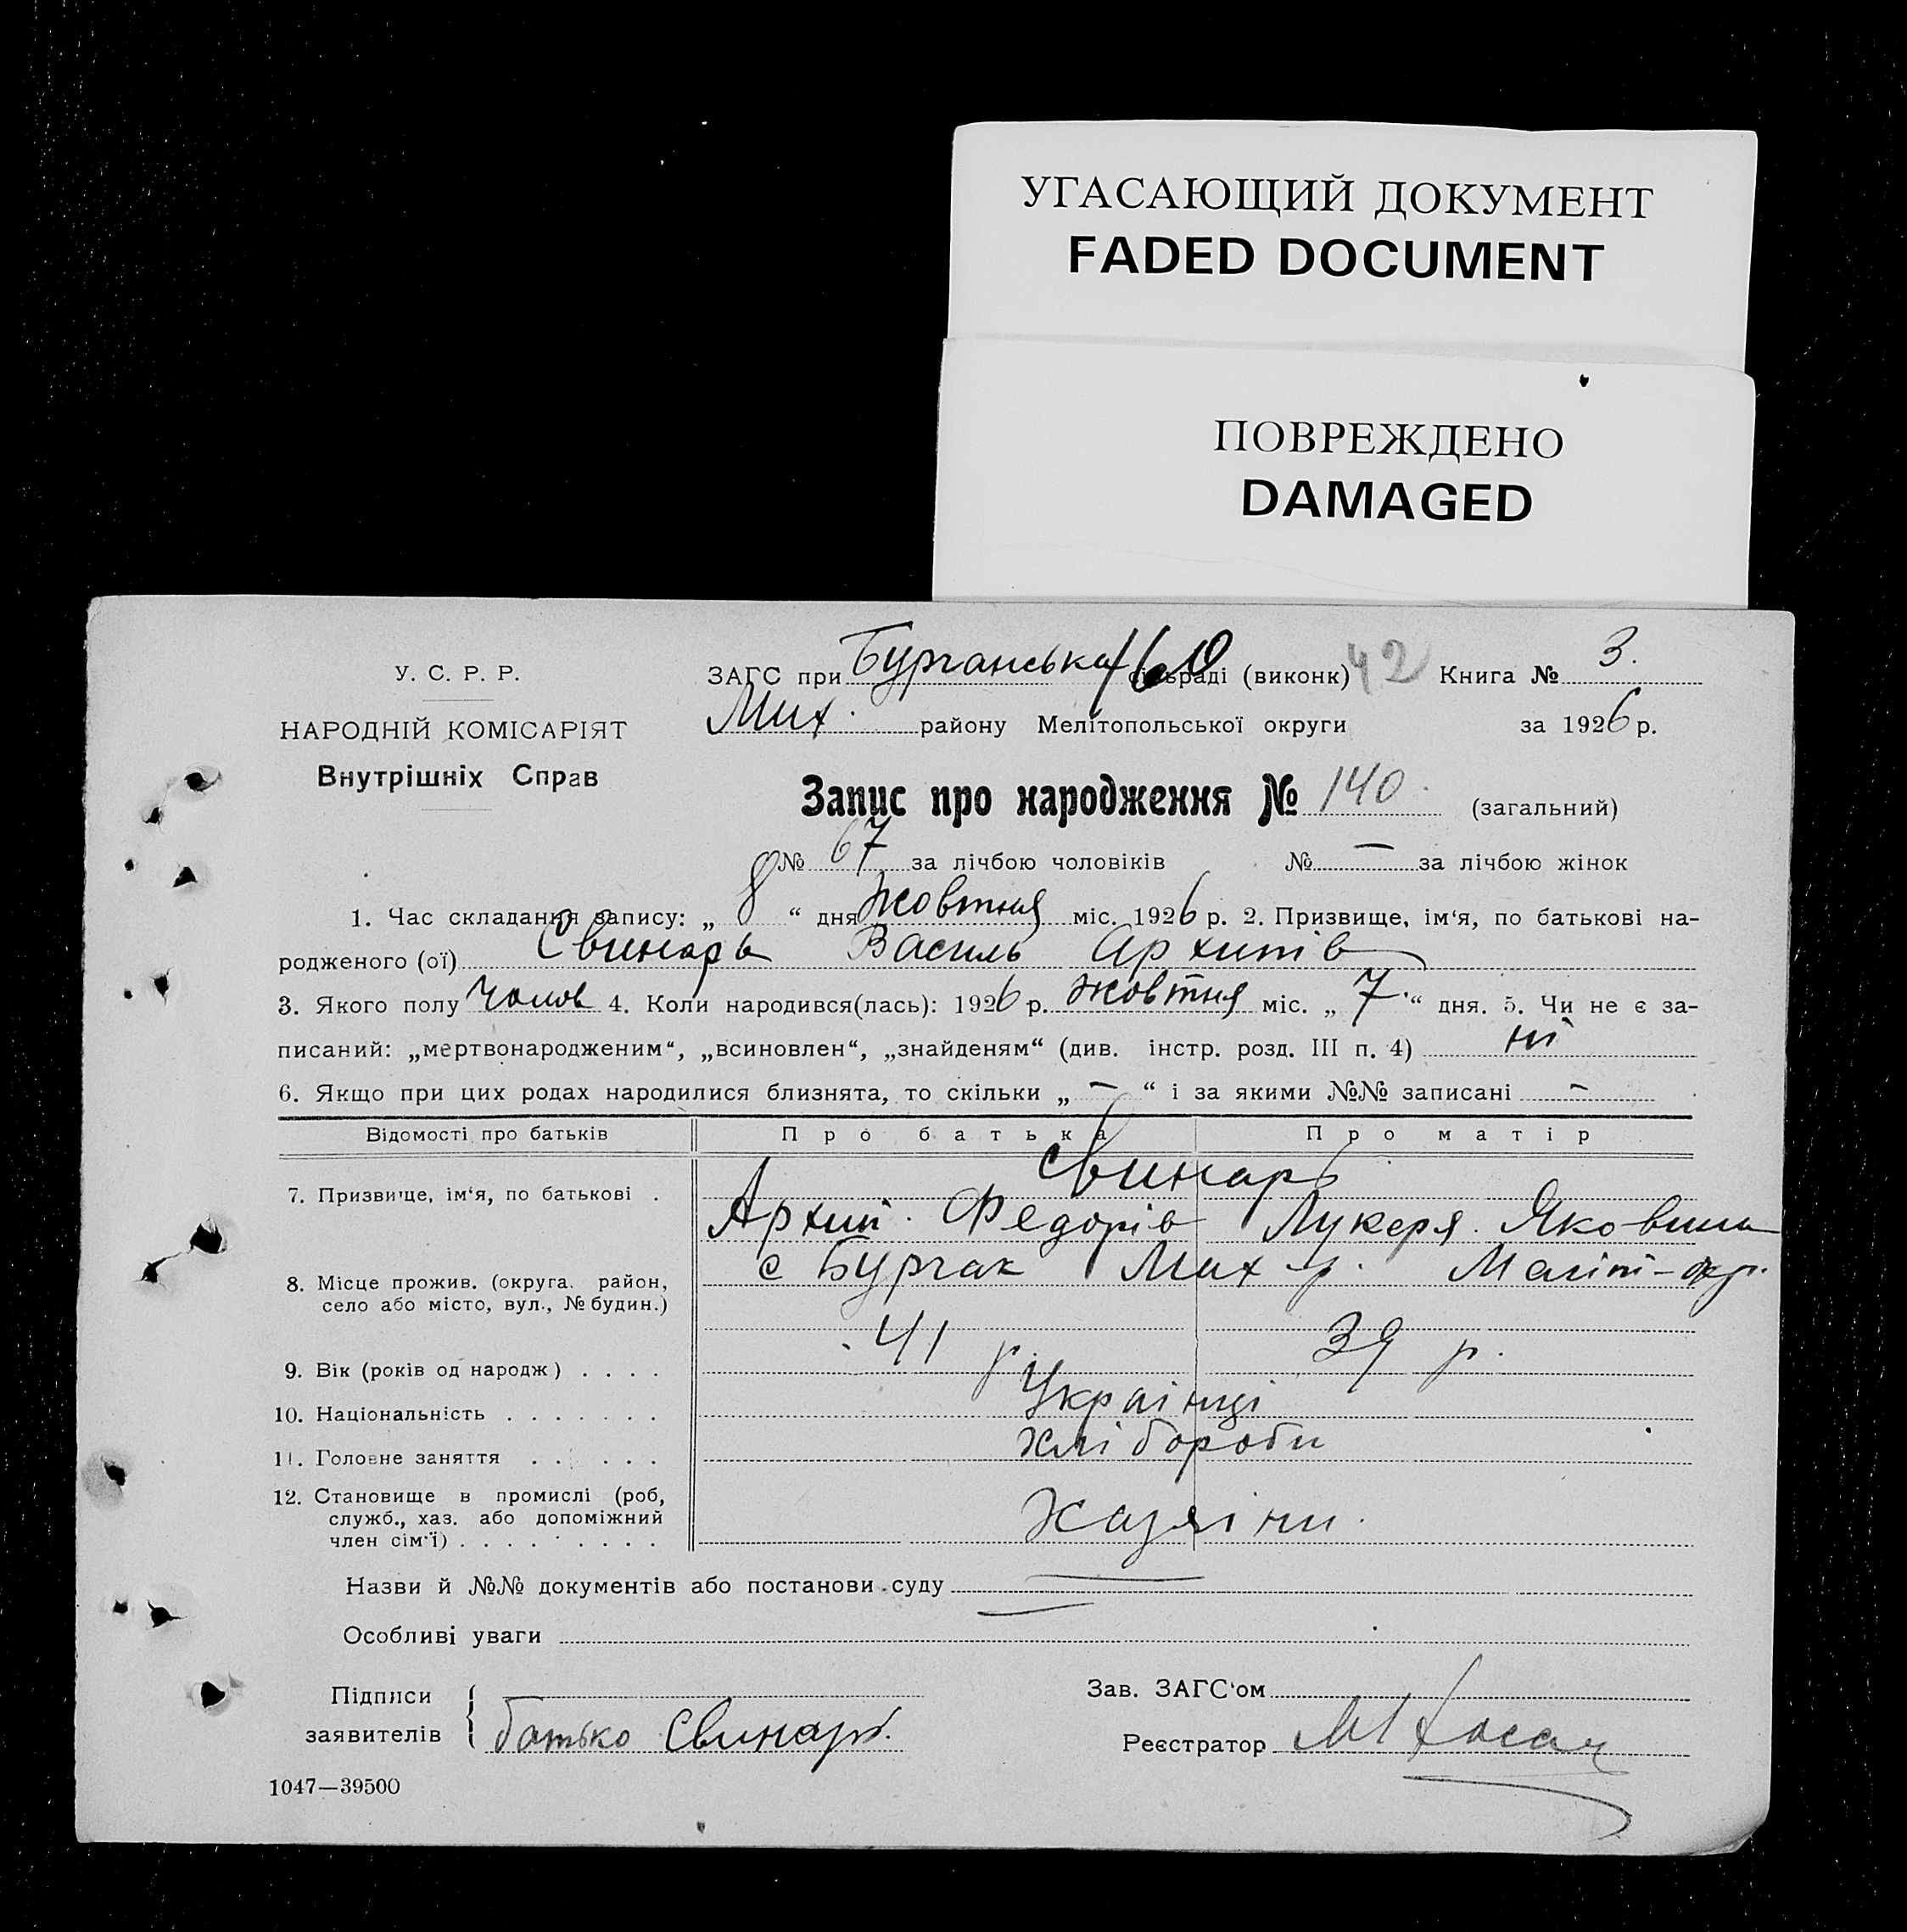 УГАСАЮЩИЙ ДОКУМЕНТ
FADED DOCUMENT
ПОВРЕЖДЕНО
DAMAGED
У. С. Р. Р.
НАРОДНІЙ КОМІСАРІЯТ
Внутрішніх Справ
ЗАГС при Бурчанська 160 сільраді (виконк) 42 Книга № 3.
Мих. району Мелітопольської округи за 1926 р.
Запис про народження № 140. (загальний)
№ 67 за лічбою чоловіків № — за лічбою жінок
1. Час складання запису: „ 8 “ дня жовтня міс. 1926 р. 2. Призвище, ім‘я, по батькові на-
родженого (ої) Свинарь Василь Архипів
3. Якого полу чолов 4. Коли народився(лась): 1926 р. жовтня міс. „ 7. “ дня. 5. Чи не є за-
писаний: „мертвонародженим“, „всиновлен“, „знайденям“ (див. інстр. розд. III п. 4) ні
6. Якщо при цих родах народилися близнята, то скільки „ — “ і за якими №№ записані —
Відомості про батьків Про батька Про матір
7. Призвище, ім‘я, по батькові . Свинарь
Архип. Федорів Лукеря. Яковина
8. Місце прожив. (округа. район, с Бурчак Мих р.
село або місто, вул., № будин.)
9. Вік (років од народж) . . . . 41 р. 39 р.
10. Національність . . . . . . . Українці
11. Головне заняття . . . . . . хлібороби
12. Становище в промислі (роб,
служб., хаз. або допоміжний
член сім‘ї) . . . . . . . . . Хазяіни.
Назви й №№ документів або постанови суду —
Особливі уваги —
Підписи
заявителів батько Свинарь.
Зав. ЗАГС‘ом
Реєстратор
1047—39500